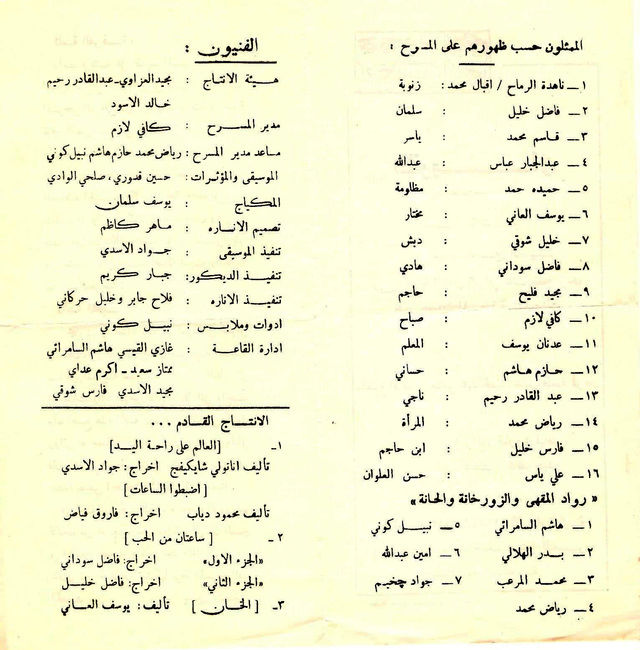 الممثلون حسب ظهورهم على المسرح :
١ـ ناهدة الرماح / اقبال محمد : زنوبة
٢ـ فاضل خليل : سلمان
٣ـ قاسم محمد : ياسر
٤ـ عبدالجبار عباس : عبدالله
٥ـ حميده حمد : مظلومة
٦ـ يوسف العاني : مختار
٧ـ خليل شوقي : دبش
٨ـ فاضل سوداني : هادي
٩ـ مجيد فليح : حاجم
١٠ـ كافي لازم : صباح
١١ـ عدنان يوسف : المعلم
١٢ـ حازم هاشم : حساني
١٣ـ عبد القادر رحيم : ناجي
١٤ـ رياض محمد : المرأة
١٥ـ فارس خليل : ابن حاجم
١٦ـ علي ياس : حسن العلوان
« رواد المقهى والزورخانة والحانة»
١ـ هاشم السامرائي ٥ـ نبيل كوني
٢ـ بدر الهلالي ٦ـ امين عبدالله
٣ـ محمد المرعب ٧ـ جواد چخيم
٤ـ رياض محمد
الفنيون :
هيئة الانتاج : مجيد العزاوي-عبدالقادر رحيم
خالد الاسود
مدير المسرح : كافي لازم
مساعد مدير المسرح : رياض محمد حازم هاشم نبيل كوني
الموسيقى والمؤثرات : حسين قدوري، صلحي الوادي
المكياج : يوسف سلمان
تصميم الاناره : ماهر كاظم
تنفيذ الموسيقى : جواد الاسدي
تنفيذ الديكور : جبار كريم
تنفيذ الاناره : فلاح جابر وخليل حركاني
ادوات وملابس : نبيل كوني
ادارة القاعة : غازي القيسي هاشم السامرائي
ممتاز سعيد ـ اكرم عداي
مجيد الاسدي فارس شوقي
الانتاج القادم ...
١ـ [العالم على راحة اليد]
تأليف اناتولي شايكيفج اخراج : جواد الاسدي
[ اضبطوا الساعات ]
تأليف محمود دياب اخراج : فاروق فياض
٢ـ [ ساعتان من الحب ]
«الجزء الاول» اخراج : فاضل سوداني
«الجزء الثاني» اخراج : فاضل خليل
٣ـ [ الخان ] تأليف : يوسف العاني